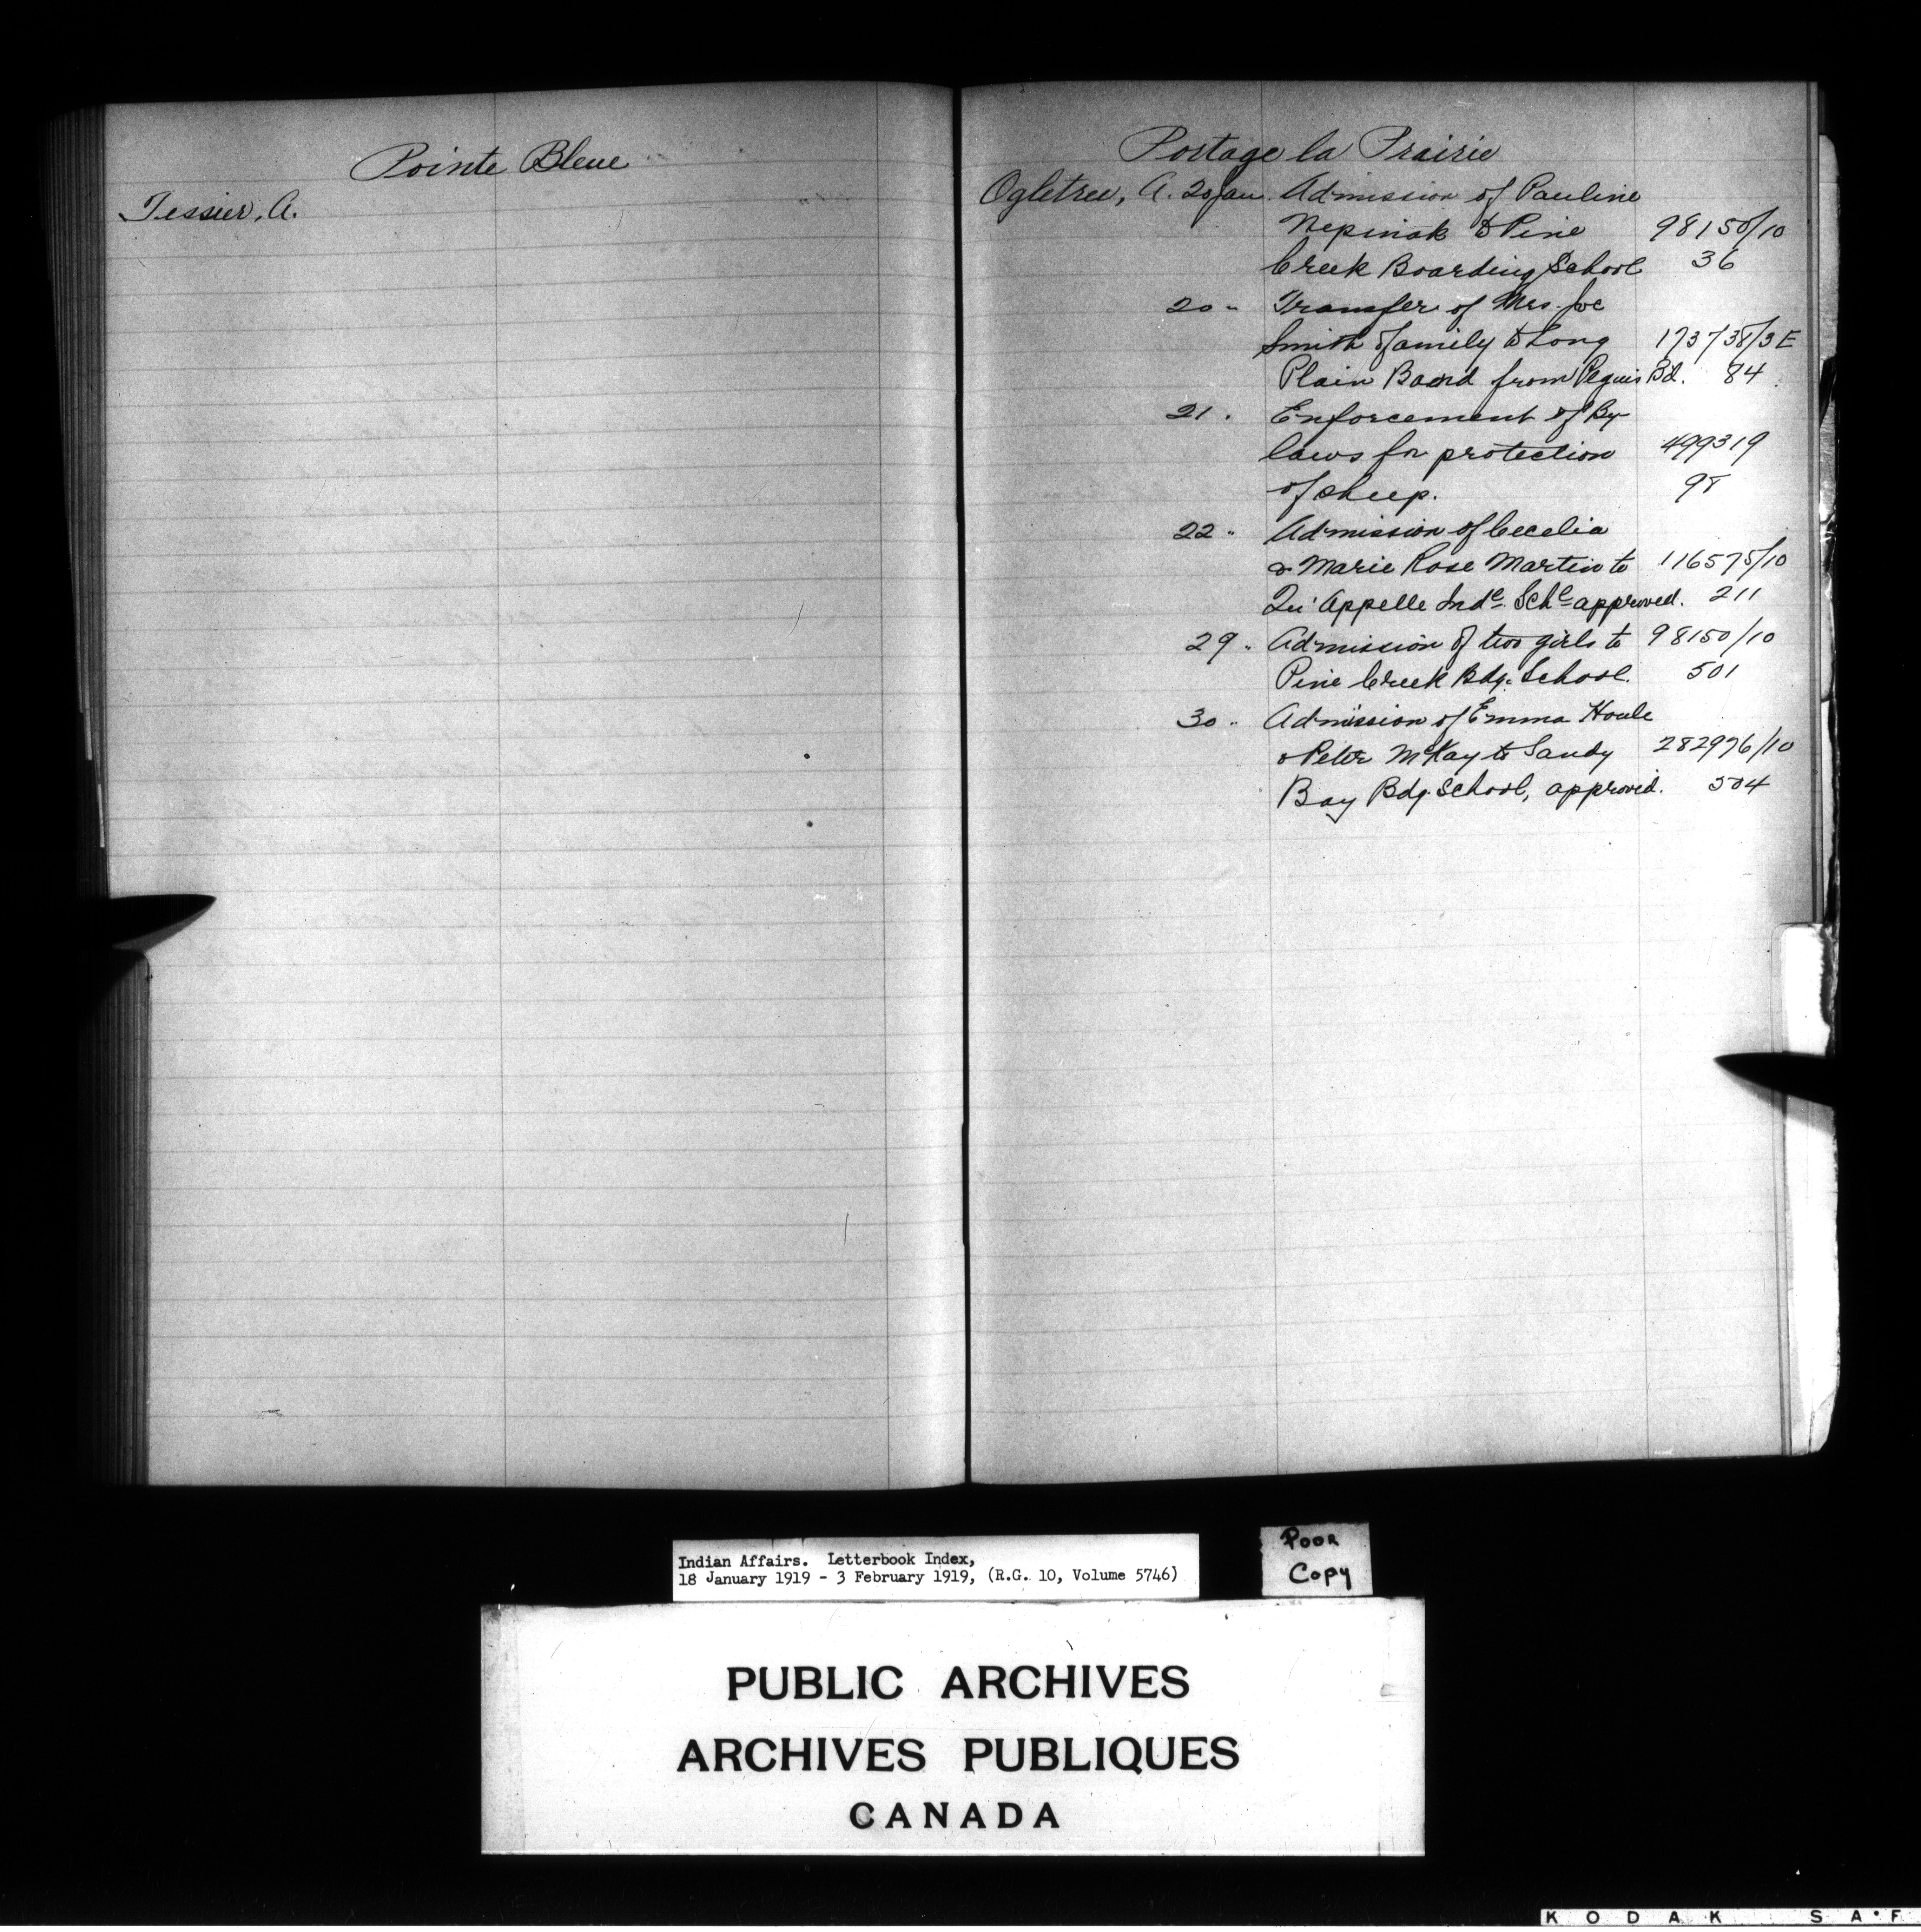 Pointe Bleue
Tessier, A.
Portage la Prairie
Ogletree, A. 20 Jan. Admission of Pauline
Nepinak to Pine 98150/10
Creek Boarding School 36
20 " Transfer of Mrs. Joe
Smith & family to Long 173738/3E
Plain Band from Peguis Bd. 84
21 . Enforcement of By-
laws for protection 499319
of sheep. 98
22 " Admission of Cecelia
& Marie Rose Martin to 116575/10
Qu'Appelle Indl. Schl approved. 211
29 " Admission of two girls to 98150/10
Pine Creek Bdg. School. 501
30 " Admission of Emma Houle
& Peter McKay to Sandy 282976/10
Bay Bdg. School, approved. 504
Indian Affairs. Letterbook Index,
18 January 1919 - 3 February 1919, (R.G. 10, Volume 5746)
Poor
Copy
PUBLIC ARCHIVES
ARCHIVES PUBLIQUES
CANADA
KODAK SA·F